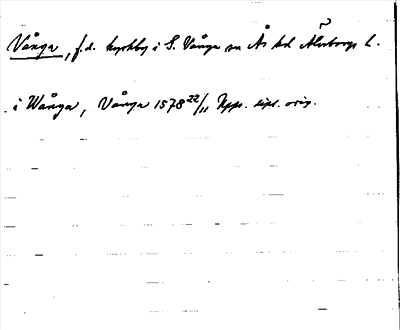 Vånga, f.d. kyrkby i S. Vånga sn Ås hd Älvsborgs l.
i Wånga, Vånga 1578 22/11 Upps. dipl. orig.